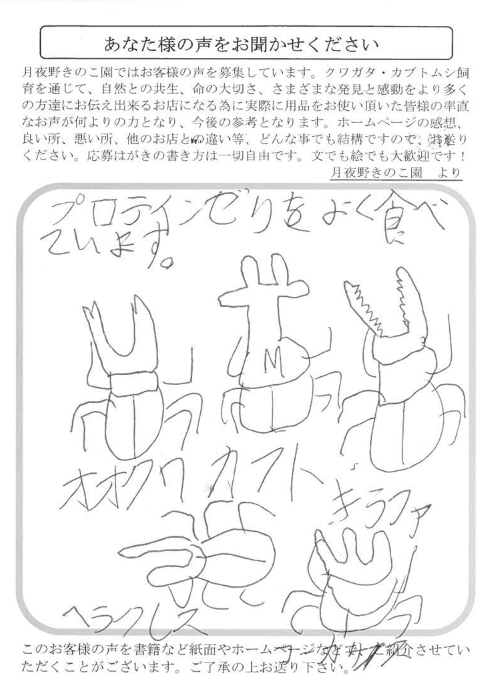 あなた様の声をお聞かせください
月夜野きのこ園ではお客様の声を募集しています。クワガタ・カブトムシ飼
育を通じて、自然との共生、命の大切さ、さまざまな発見と感動をより多く
の方達にお伝え出来るお店になる為に実際に用品をお使い頂いた皆様の率直
なお声が何よりの力となり、今後の参考となります。ホームページの感想、
良い所、悪い所、他のお店との違い等、どんな事でも結構ですので、お送り
ください。応募はがきの書き方は一切自由です。文でも絵でも大歓迎です！
月夜野きのこ園　より
プロテインゼリをよく食べ
ています。
M
オオクワ カブト
キラファ
ヘラクレス
このお客様の声を書籍など紙面やホームページなどでご紹介させてい
ただくことがございます。ご了承の上お送り下さい。